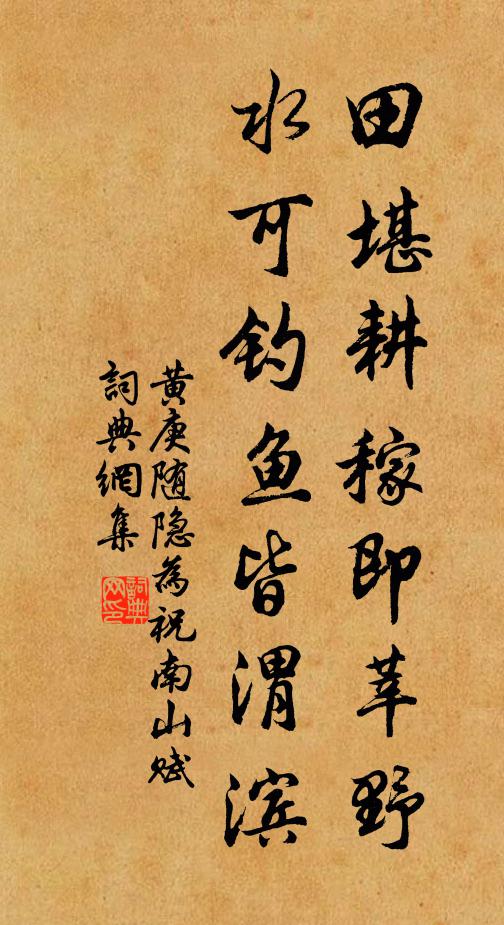 田堪耕稼即莘野
水可钓鱼皆渭滨
黄庚随隐为祝南山赋
词典網集
詞典网印